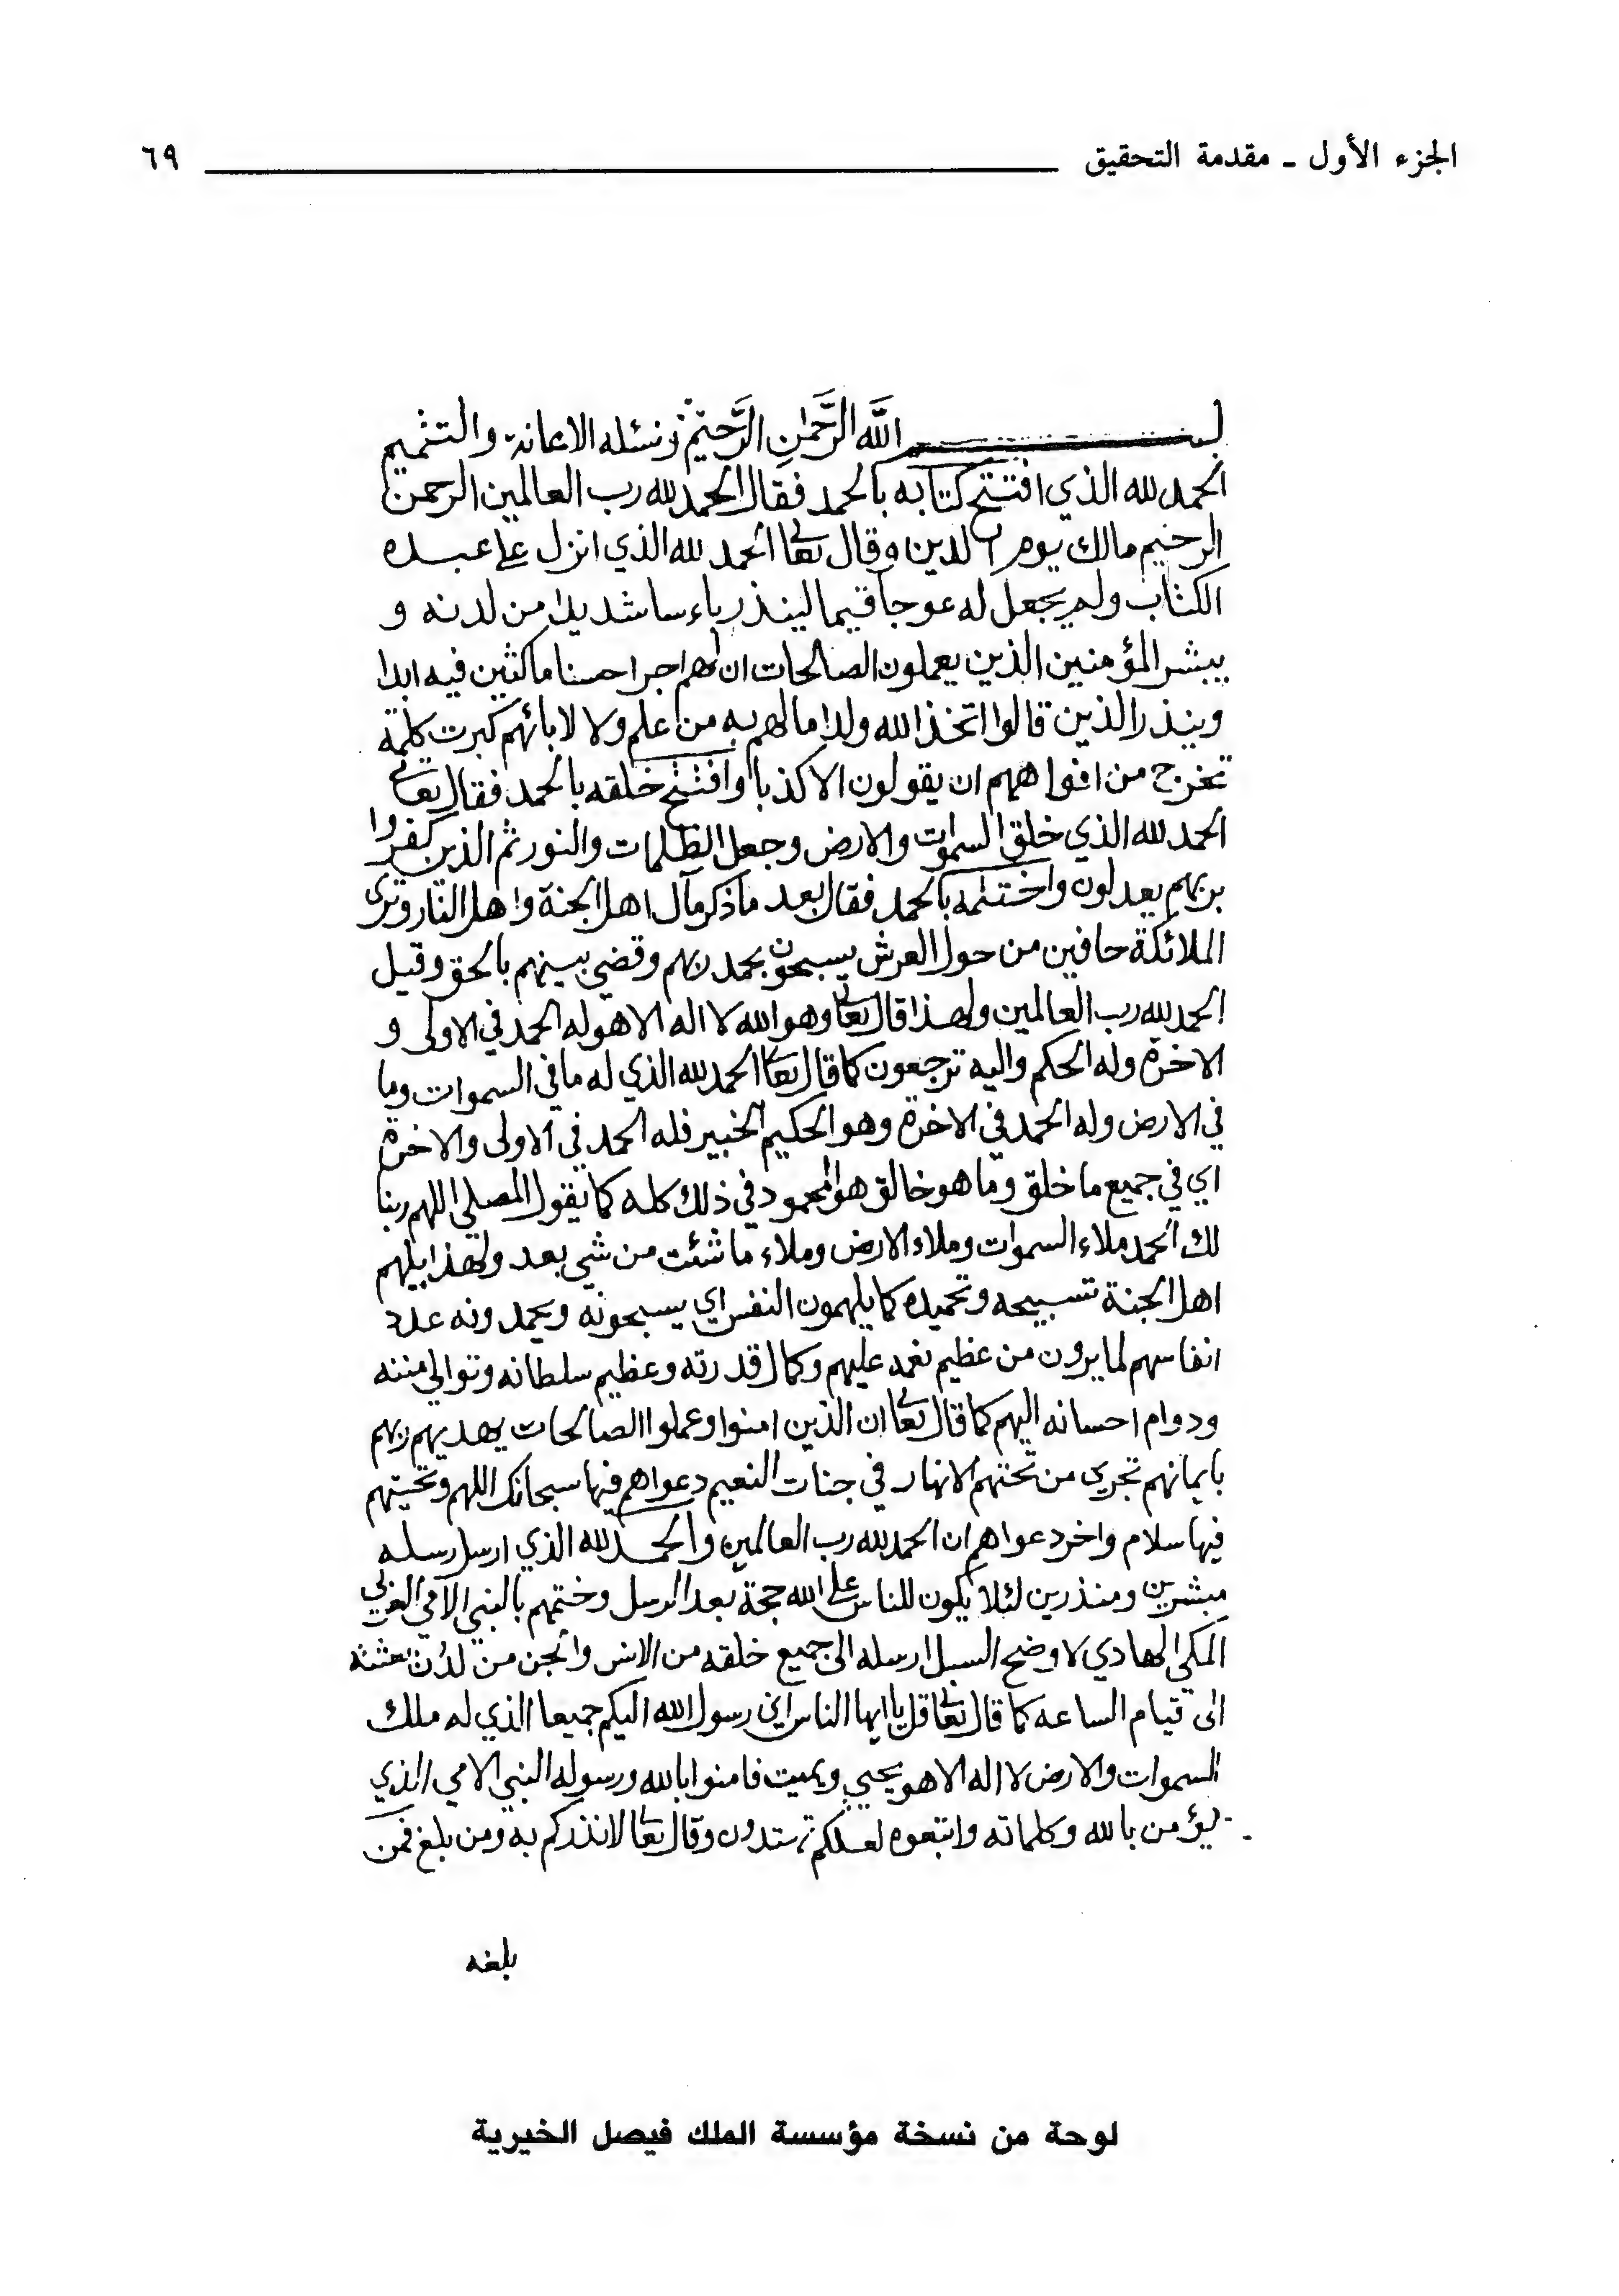 الجزء الأول ـ مقدمة التحقيق ٦٩
بسم الله الرحمن الرحيم ونسئله الاعانة والتتميم
الحمد لله الذي افتتح كتابه بالحمد فقال الحمد لله رب العالمين الرحمن
الرحيم مالك يوم الدين وقال تعالى الحمد لله الذي انزل على عبده
الكتاب ولم يجعل له عوجا قيما لينذر باءسا شديدا من لدنه و
يبشر المؤمنين الذين يعملون الصالحات ان لهم اجرا حسنا ماكثين فيه ابدا
وينذر الذين قالوا اتخذ الله ولدا ما لهم به من علم ولا لابائهم كبرت كلمة
تخرج من افواههم ان يقولون الا كذبا وافتتح خلقه بالحمد فقال تعالى
الحمد لله الذي خلق السموات والارض وجعل الظلمات والنور ثم الذين كفروا
بربهم يعدلون واختتمه بالحمد فقال بعد ما ذكر مآل اهل الجنة واهل النار وترى
الملائكة حافين من حول العرش يسبحون بحمد ربهم وقضي بينهم بالحق وقيل
الحمد لله رب العالمين ولهذا قال تعالى وهو الله لا اله الا هو له الحمد في الاولى و
الاخرة وله الحكم واليه ترجعون كما قال تعالى الحمد لله الذي له ما في السموات وما
في الارض وله الحمد في الاخرة وهو الحكيم الخبير فله الحمد في الاولى والاخرة
اي في جميع ما خلق وما هو خالق هو المحمود في ذلك كله كما يقول المصلي اللهم ربنا
لك الحمد ملاء السموات وملاء الارض وملاء ما شئت من شي بعد ولهذا يلهم
اهل الجنة تسبيحه وتحميده كما يلهمون النفس اي يسبحونه ويحمدونه عدد
انفاسهم لما يرون من عظيم نعمه عليهم وكمال قدرته وعظيم سلطانه وتوالي مننه
ودوام احسانه اليهم كما قال تعالى ان الذين امنوا وعملوا الصالحات يهديهم ربهم
بايمانهم تجري من تحتهم الانهار في جنات النعيم دعواهم فيها سبحانك اللهم وتحيتهم
فيها سلام واخر دعواهم ان الحمد لله رب العالمين والحمد لله الذي ارسل رسله
مبشرين ومنذرين لئلا يكون للناس على الله حجة بعد الرسل وختمهم بالنبي الامي العربي
المكي الهادي لاوضح السبل ارسله الى جميع خلقه من الانس والجن من لدن بعثته
الى قيام الساعه كما قال تعالى قل يا ايها الناس اني رسول الله اليكم جميعا الذي له ملك
السموات والارض لا اله الا هو يحيي ويميت فامنوا بالله ورسوله النبي الامي الذي
يؤمن بالله وكلماته واتبعوه لعلكم تهتدون وقال تعالى لانذركم به ومن بلغ فمن
بلغه
لوحة من نسخة مؤسسة الملك فيصل الخيرية